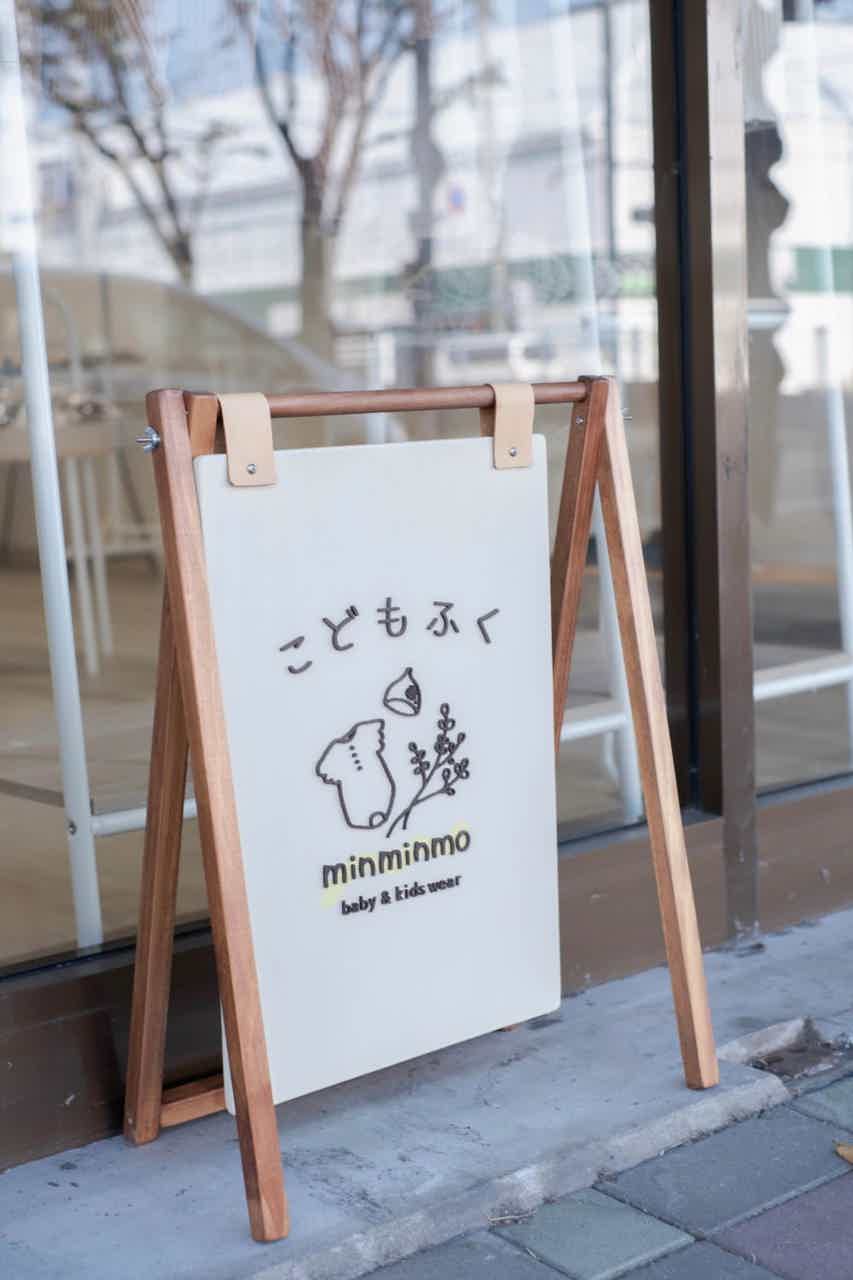 こどもふく
minminmo
baby & kids wear